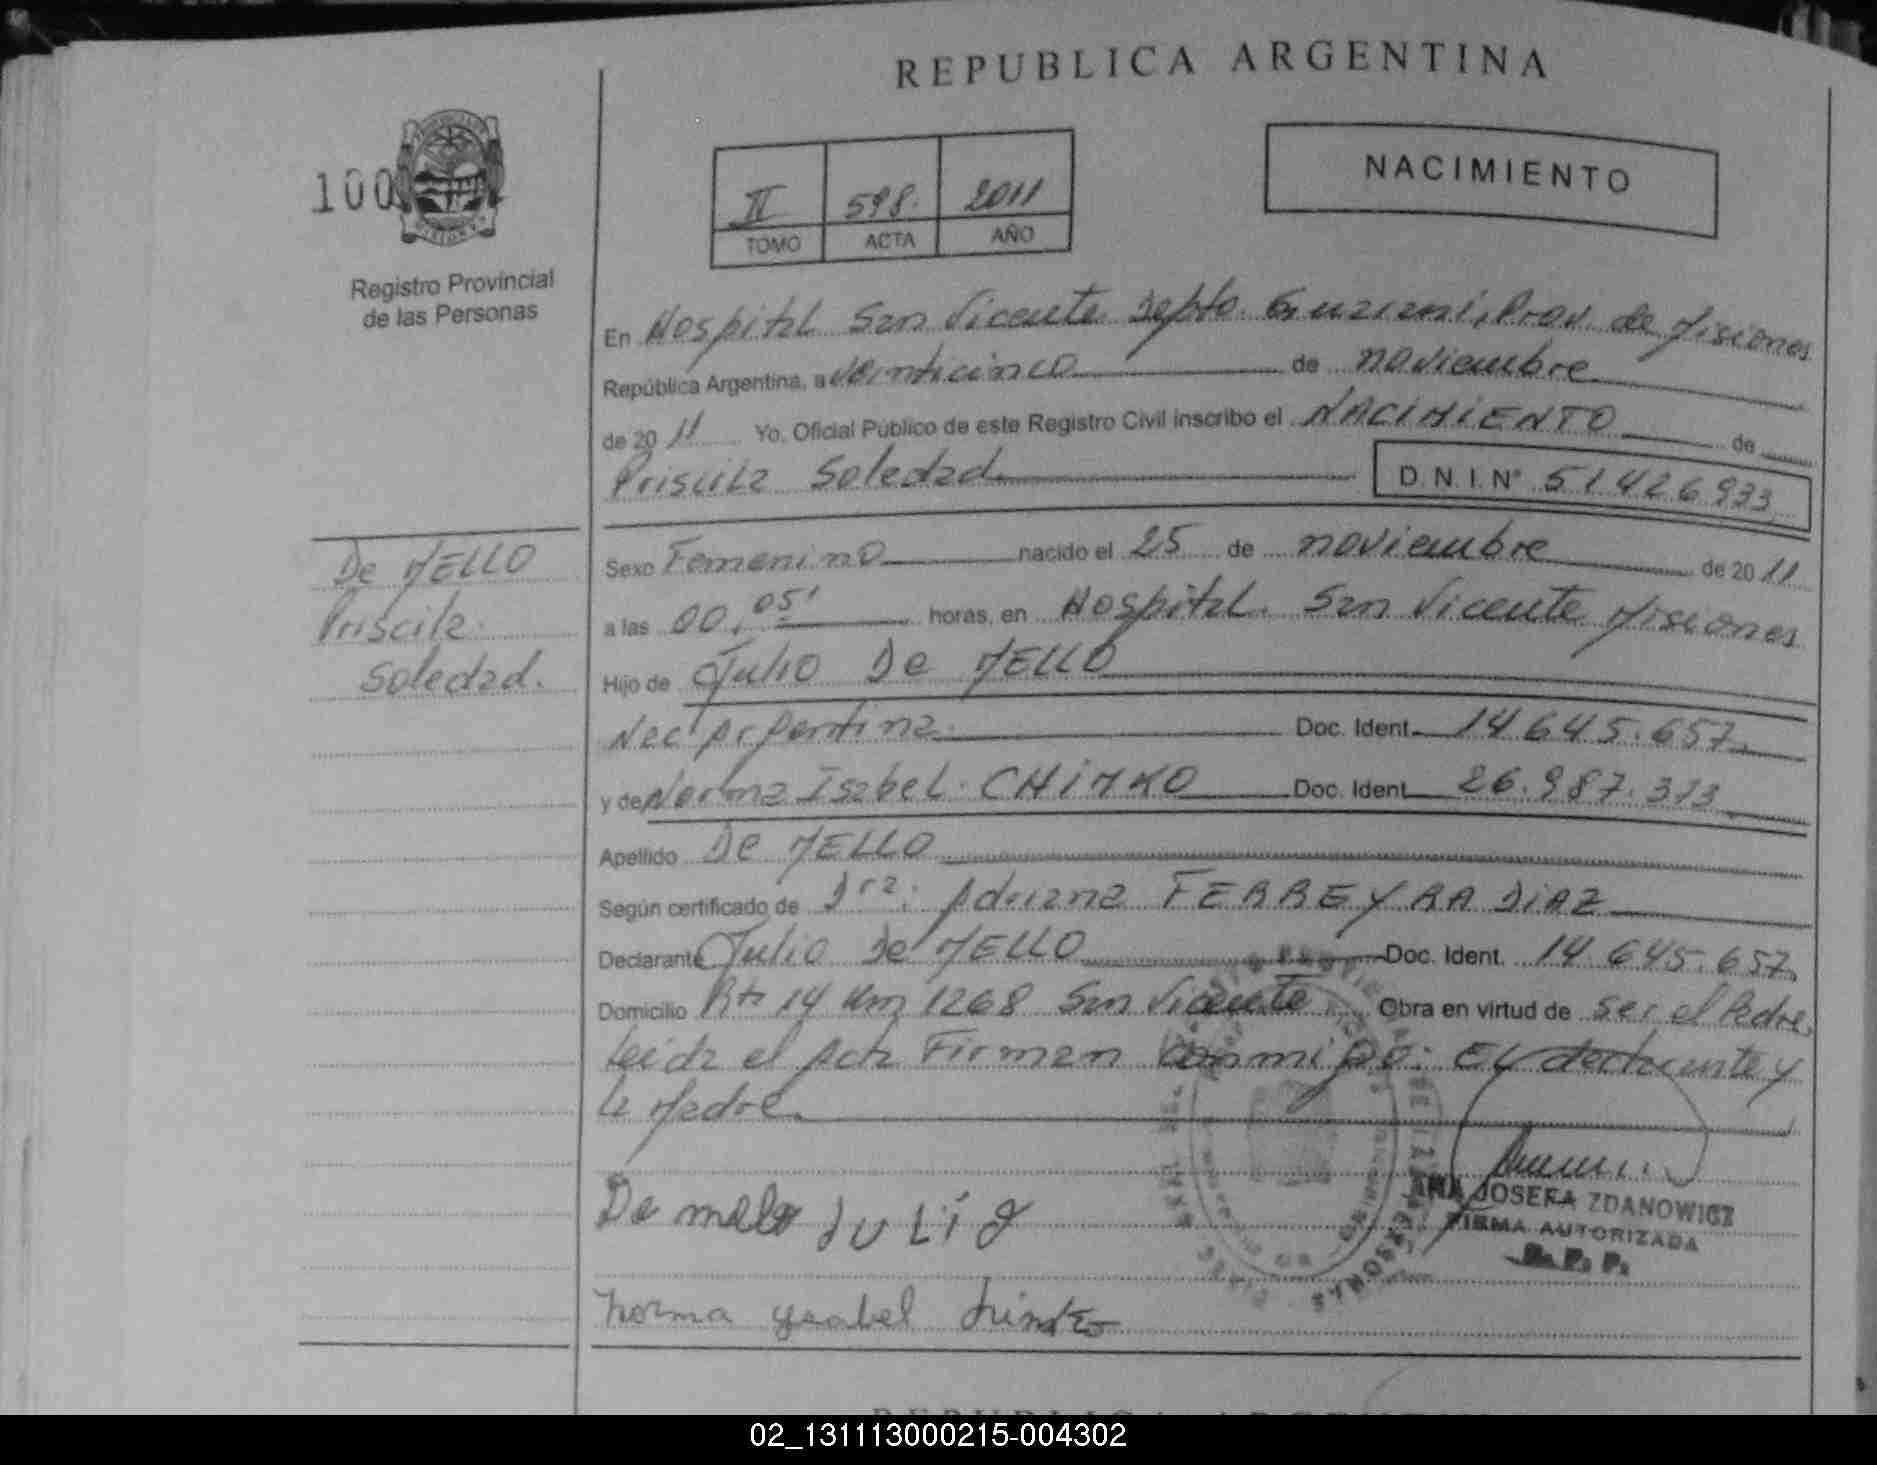 REPUBLICA ARGENTINA
100
Registro Provincial
de las Personas
II 598. 2011
TOMO ACTA AÑO
NACIMIENTO
En Hospital San Vicente Depto. Guarani, Prov. de Misiones
República Argentina, a veinticinco de noviembre
de 20 11 Yo, Oficial Público de este Registro Civil inscribo el NACIMIENTO de
Priscila Soledad D.N.I.Nº 51426933
De MELLO
Priscila
Soledad.
Sexo Femenino nacido el 25 de noviembre de 20 11
a las 00,05' horas, en Hospital San Vicente Misiones
Hijo de Julio De MELLO
Nac. Argentina Doc. Ident. 14.645.657
y de Norma Isabel CHIMKO Doc. Ident. 26.987.313
Apellido De MELLO
Según certificado de Dra: Adriana FERREYRA DIAZ
Declarante Julio De MELLO Doc. Ident. 14.645.657
Domicilio Rta 14 Km 1268 San Vicente Obra en virtud de ser el Padre
Leida el Acta Firman conmigo: El declarante y
la Madre
De melo JULIO
ANA JOSEFA ZDANOWICZ
FIRMA AUTORIZADA
R. P. P.
norma ysabel
02_131113000215-004302